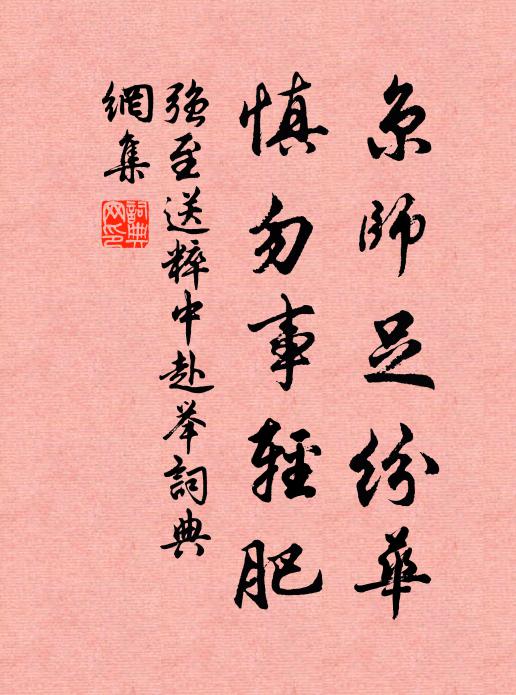 京師足紛華
慎勿事輕肥
強至送粹中赴举詞典
網集
詞典
网印